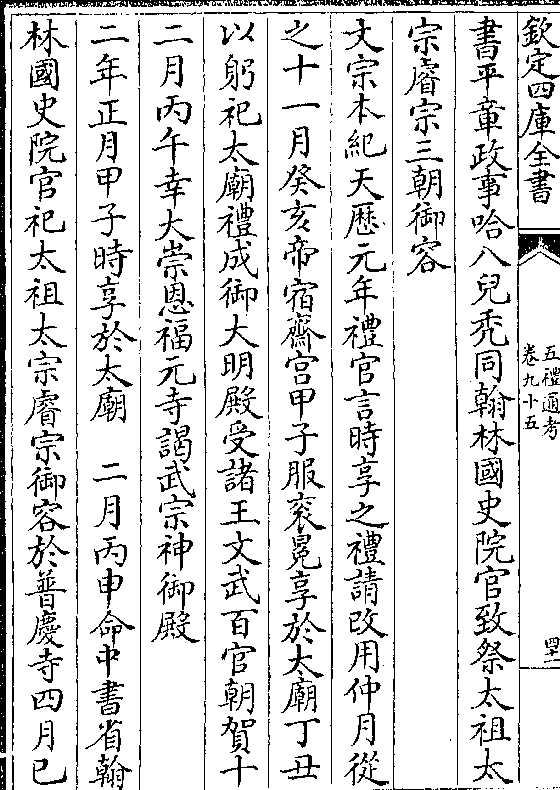 欽定四庫全書
五禮通考
卷九十五
四十二
書平章政事哈八兒秃同翰林國史院官致祭太祖太
宗睿宗三朝御容
文宗本紀天歷元年禮官言時享之禮請改用仲月從
之十一月癸亥帝宿齋宫甲子服衮冕享於太廟丁丑
以躬祀太廟禮成御大明殿受諸王文武百官朝賀十
二月丙午幸大崇恩福元寺謁武宗神御殿
二年正月甲子時享於太廟　二月丙申命中書省翰
林國史院官祀太祖太宗睿宗御容於普慶寺四月已